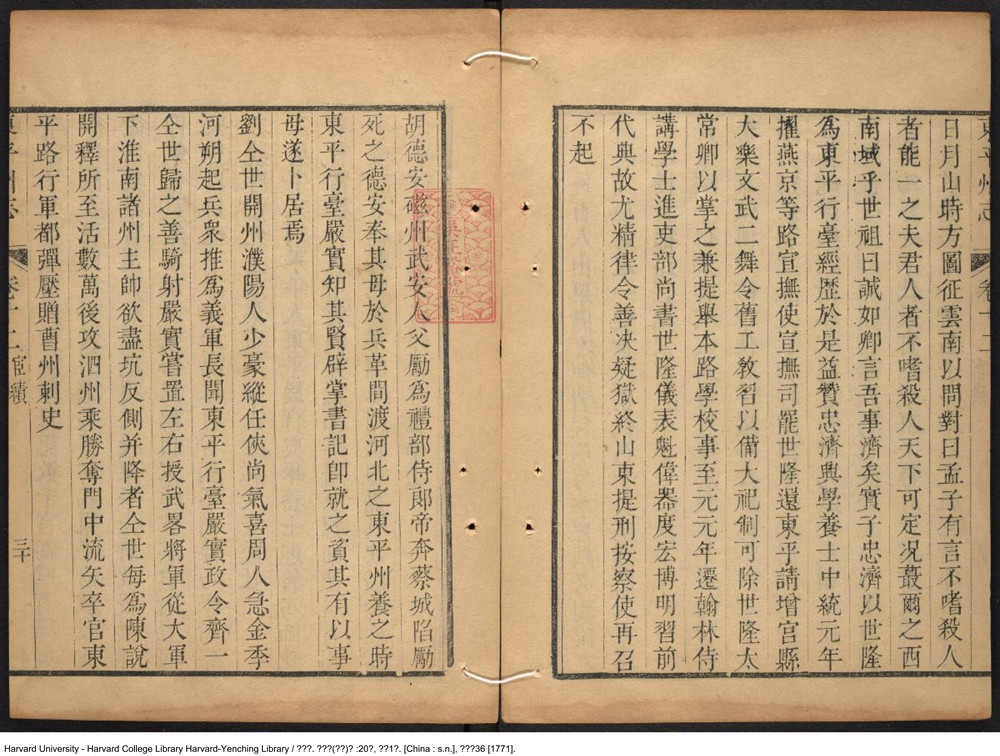 東平州志 卷十二
日月山時方圖征雲南以問對曰孟子有言不嗜殺人
者能一之夫君人者不嗜殺人天下可定况蕞爾之西
南域乎世祖曰誠如卿言吾事濟矣實子忠濟以世隆
為東平行臺經歷於是益贊忠濟興學養士中統元年
擢燕京等路宣撫使宣撫司罷世隆還東平請增宮縣
大樂文武二舞令舊工教習以備大祀制可除世隆太
常卿以掌之兼提舉本路學校事至元元年遷翰林侍
講學士進吏部尚書世隆儀表魁偉器度宏博明習前
代典故尤精律令善决疑獄終山東提刑按察使再召
不起
胡德安磁州武安人父勵為禮部侍郎帝奔蔡城陷勵
死之德安奉其母於兵革間渡河北之東平州養之時
東平行臺嚴實知其賢辟掌書記卽就之資其有以事
母遂卜居焉
劉仝世開州濮陽人少豪縱任俠尚氣喜周人急金季
河朔起兵衆推為義軍長聞東平行臺嚴實政令齊一
仝世歸之善騎射嚴實嘗置左右授武畧將軍從大軍
下淮南諸州主帥欲盡坑反側并降者仝世每為陳說
開釋所至活數萬後攻泗州乘勝奪門中流矢卒官東
平路行軍都彈壓贈曹州刺史
東平州志 卷十二 宦績 三十
Harvard University - Harvard College Library Harvard-Yenching Library / ???. ???(??)? :20?, ??1?. [China : s.n.], ???36 [1771].